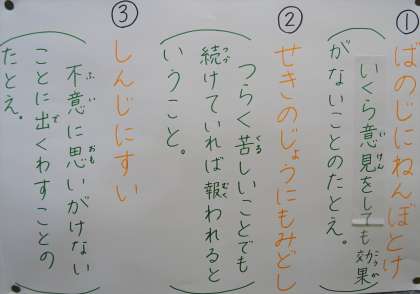 ①
ばのじにねんぼとけ
いくら意見をしても効果
がないことのたとえ。
②
せきのじょうにもみどし
つらく苦しいことでも
続けていれば報われると
いうこと。
③
しんじにすい
不意に思いがけない
ことに出くわすことの
たとえ。